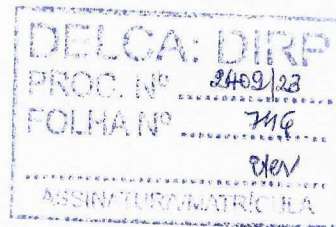 DELCA: DIRP
PROC. Nº 2409/23
FOLHA Nº
ASSINATURA/MATRÍCULA